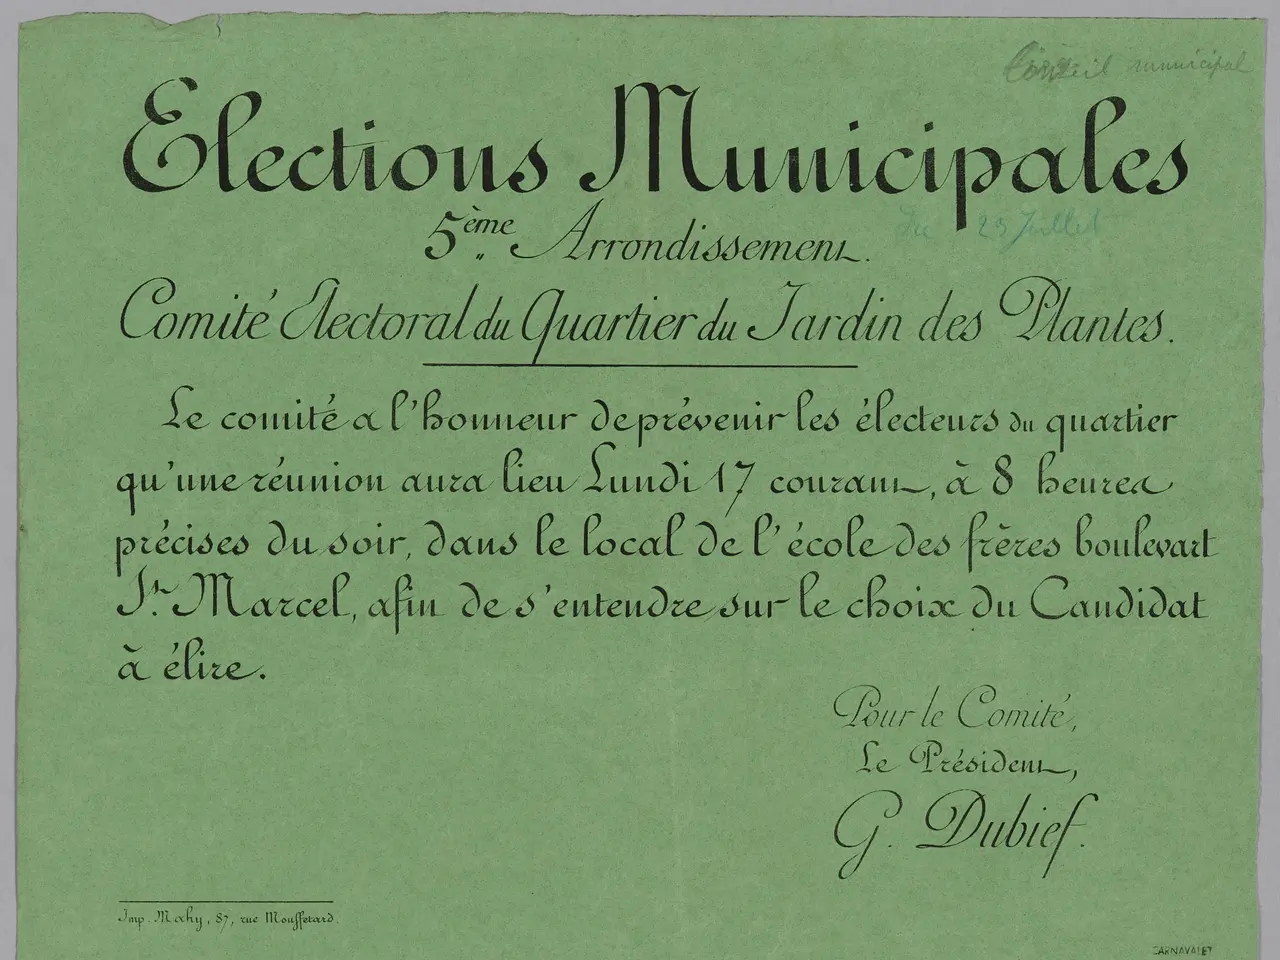 Conseil municipal
Elections Municipales
du 23 Juillet
5ème Arrondissement.
Comité Electoral du Quartier du Jardin des Plantes.
Le comité a l'honneur de prévenir les électeurs du quartier
qu'une réunion aura lieu Lundi 17 courant, à 8 heures
précises du soir, dans le local de l'école des frères boulevart
St. Marcel, afin de s'entendre sur le choix du Candidat
à élire.
Pour le Comité,
Le Président,
G. Dubief.
Imp. Mahy, 87, rue Mouffetard.
CARNAVALET